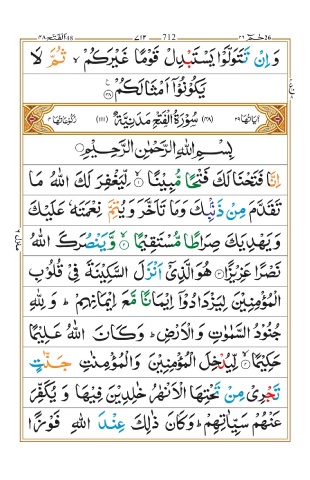 حٰمٓ 26 ٢٦ 712 ٧١٢ الفتح 48
وَاِنْ تَتَوَلَّوْا يَسْتَبْدِلْ قَوْمًا غَيْرَكُمْ ۙ ثُمَّ لَا
يَكُوْنُوْۤا اَمْثَالَكُمْ ۟
اٰيَاتُهَا ٢٩ (٤٨) سُوْرَةُ الْفَتْحِ مَدَنِيَّةٌ (١١١) رُكُوْعَاتُهَا ٤
بِسْمِ اللهِ الرَّحْمٰنِ الرَّحِيْمِ
اِنَّا فَتَحْنَا لَكَ فَتْحًا مُّبِيْنًا ۙ لِّيَغْفِرَ لَكَ اللهُ مَا
تَقَدَّمَ مِنْ ذَنْۢبِكَ وَمَا تَاَخَّرَ وَيُتِمَّ نِعْمَتَهٗ عَلَيْكَ
وَيَهْدِيَكَ صِرَاطًا مُّسْتَقِيْمًا ۙ وَّيَنْصُرَكَ اللهُ
نَصْرًا عَزِيْزًا هُوَ الَّذِيْۤ اَنْزَلَ السَّكِيْنَةَ فِيْ قُلُوْبِ
الْمُؤْمِنِيْنَ لِيَزْدَادُوْۤا اِيْمَانًا مَّعَ اِيْمَانِهِمْ ؕ وَلِلّٰهِ
جُنُوْدُ السَّمٰوٰتِ وَالْاَرْضِ ؕ وَكَانَ اللهُ عَلِيْمًا
حَكِيْمًا ۙ لِّيُدْخِلَ الْمُؤْمِنِيْنَ وَالْمُؤْمِنٰتِ جَنّٰتٍ
تَجْرِيْ مِنْ تَحْتِهَا الْاَنْهٰرُ خٰلِدِيْنَ فِيْهَا وَيُكَفِّرَ
عَنْهُمْ سَيِّاٰتِهِمْ ؕ وَكَانَ ذٰلِكَ عِنْدَ اللهِ فَوْزًا